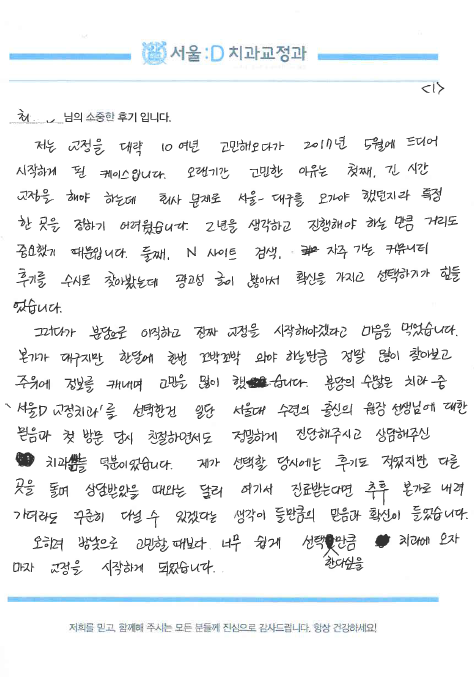 서울:D 치과교정과
<1>
최 님의 소중한 후기 입니다.
저는 교정을 대략 10여년 고민해오다가 2017년 5월에 드디어
시작하게 된 케이스입니다. 오랜기간 고민한 이유는 첫째, 긴 시간
교정을 해야 하는데 회사 문제로 서울-대구를 오가야 했던지라 특정
한 곳을 정하기 어려웠습니다. 2년을 생각하고 진행해야 하는 만큼 거리도
중요했기 때문입니다. 둘째, N 사이트 검색, 자주 가는 커뮤니티
후기를 수시로 찾아봤는데 광고성 글이 많아서 확신을 가지고 선택하기가 힘들
었습니다.
그러다가 분당으로 이직하고 진짜 교정을 시작해야겠다고 마음을 먹었습니다.
본가가 대구지만 한달에 한번 꼬박꼬박 와야 하는만큼 정말 많이 찾아보고
주위에 정보를 캐내며 고민을 많이 했습니다. 분당의 수많은 치과 중
'서울D교정치과'를 선택한건 일단 서울대 수련의 출신의 원장 선생님에 대한
믿음과 첫 방문 당시 친절하면서도 정밀하게 진단해주시고 상담해주신
치과 덕분이었습니다. 제가 선택할 당시에는 후기도 적었지만 다른
곳을 돌며 상담받았을 때와는 달리 여기서 진료받는다면 추후 본가로 내려
가더라도 꾸준히 다닐 수 있겠다는 생각이 들만큼의 믿음과 확신이 들었습니다.
오히려 밤낮으로 고민할 때보다 너무 쉽게 선택 만큼 치과에 오자
마자 교정을 시작하게 되었습니다. 한다싶을
저희를 믿고, 함께해 주시는 모든 분들께 진심으로 감사드립니다. 항상 건강하세요!